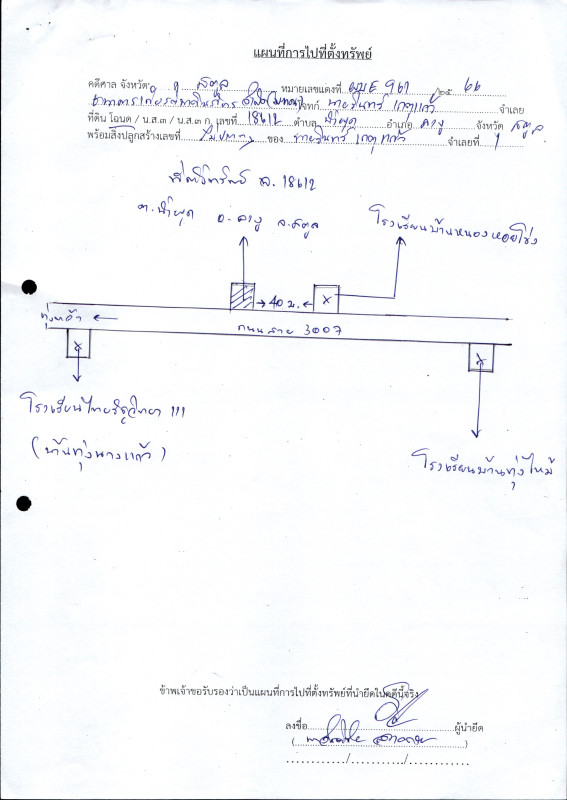 แผนที่การไปที่ตั้งทรัพย์
คดีศาล จังหวัด สตูล หมายเลขแดงที่ ผบE 961 /๒๕ 66
ธนาคารเกียรตินาคินภัทร จำกัด (มหาชน) โจทก์ นายวินทร์ เกตุแก้ว จำเลย
ที่ดิน โฉนด / น.ส.๓ / น.ส.๓ ก. เลขที่ 18612 ตำบล น้ำผุด อำเภอ ละงู จังหวัด สตูล
พร้อมสิ่งปลูกสร้างเลขที่ ไม่ปรากฏ ของ นายวินทร์ เกตุแก้ว จำเลยที่ 1
ที่ตั้งทรัพย์ ฉ. 18612
ต.น้ำผุด อ.ละงู จ.สตูล
โรงเรียนบ้านหนองหอยโข่ง
40 ม.
ทุ่งหว้า
ถนนสาย 3007
โรงเรียนไทยรัฐวิทยา 111
(บ้านทุ่งนางแก้ว)
โรงเรียนบ้านทุ่งไหม้
ข้าพเจ้าขอรับรองว่าเป็นแผนที่การไปที่ตั้งทรัพย์ที่นำยึดในคดีนี้จริง
ลงชื่อ ผู้นำยึด